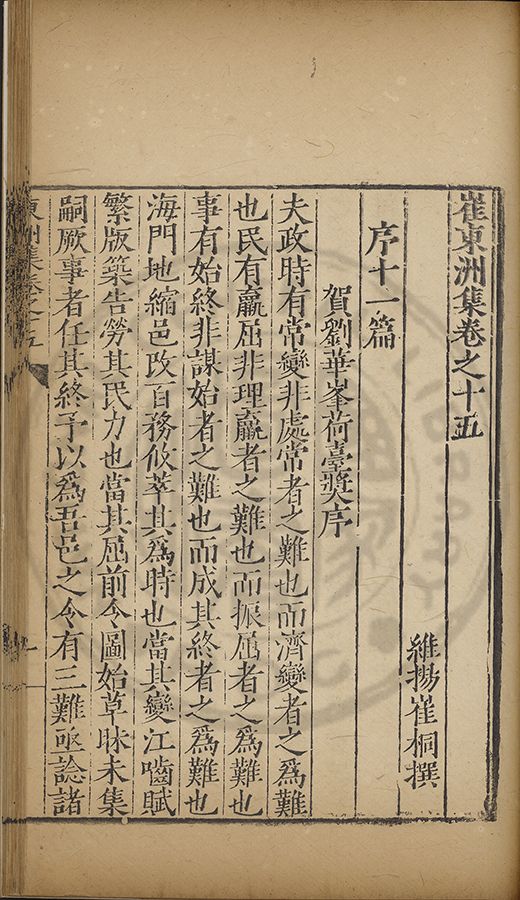 崔東洲集卷之十五
維揚崔桐撰
序十一篇
賀劉華峯荷臺奬序
夫政時有常變非處常者之難也而濟變者之爲難
也民有羸屈非理羸者之難也而振屈者之爲難也
事有始終非謀始者之難也而成其終者之爲難也
海門地縮邑改百務攸萃其爲時也當其變江嚙賦
繁版築告勞其民力也當其屈前令圖始草昧未集
嗣厥事者任其終予以爲吾邑之令有三難亟諗諸
東洲集卷之十五
一